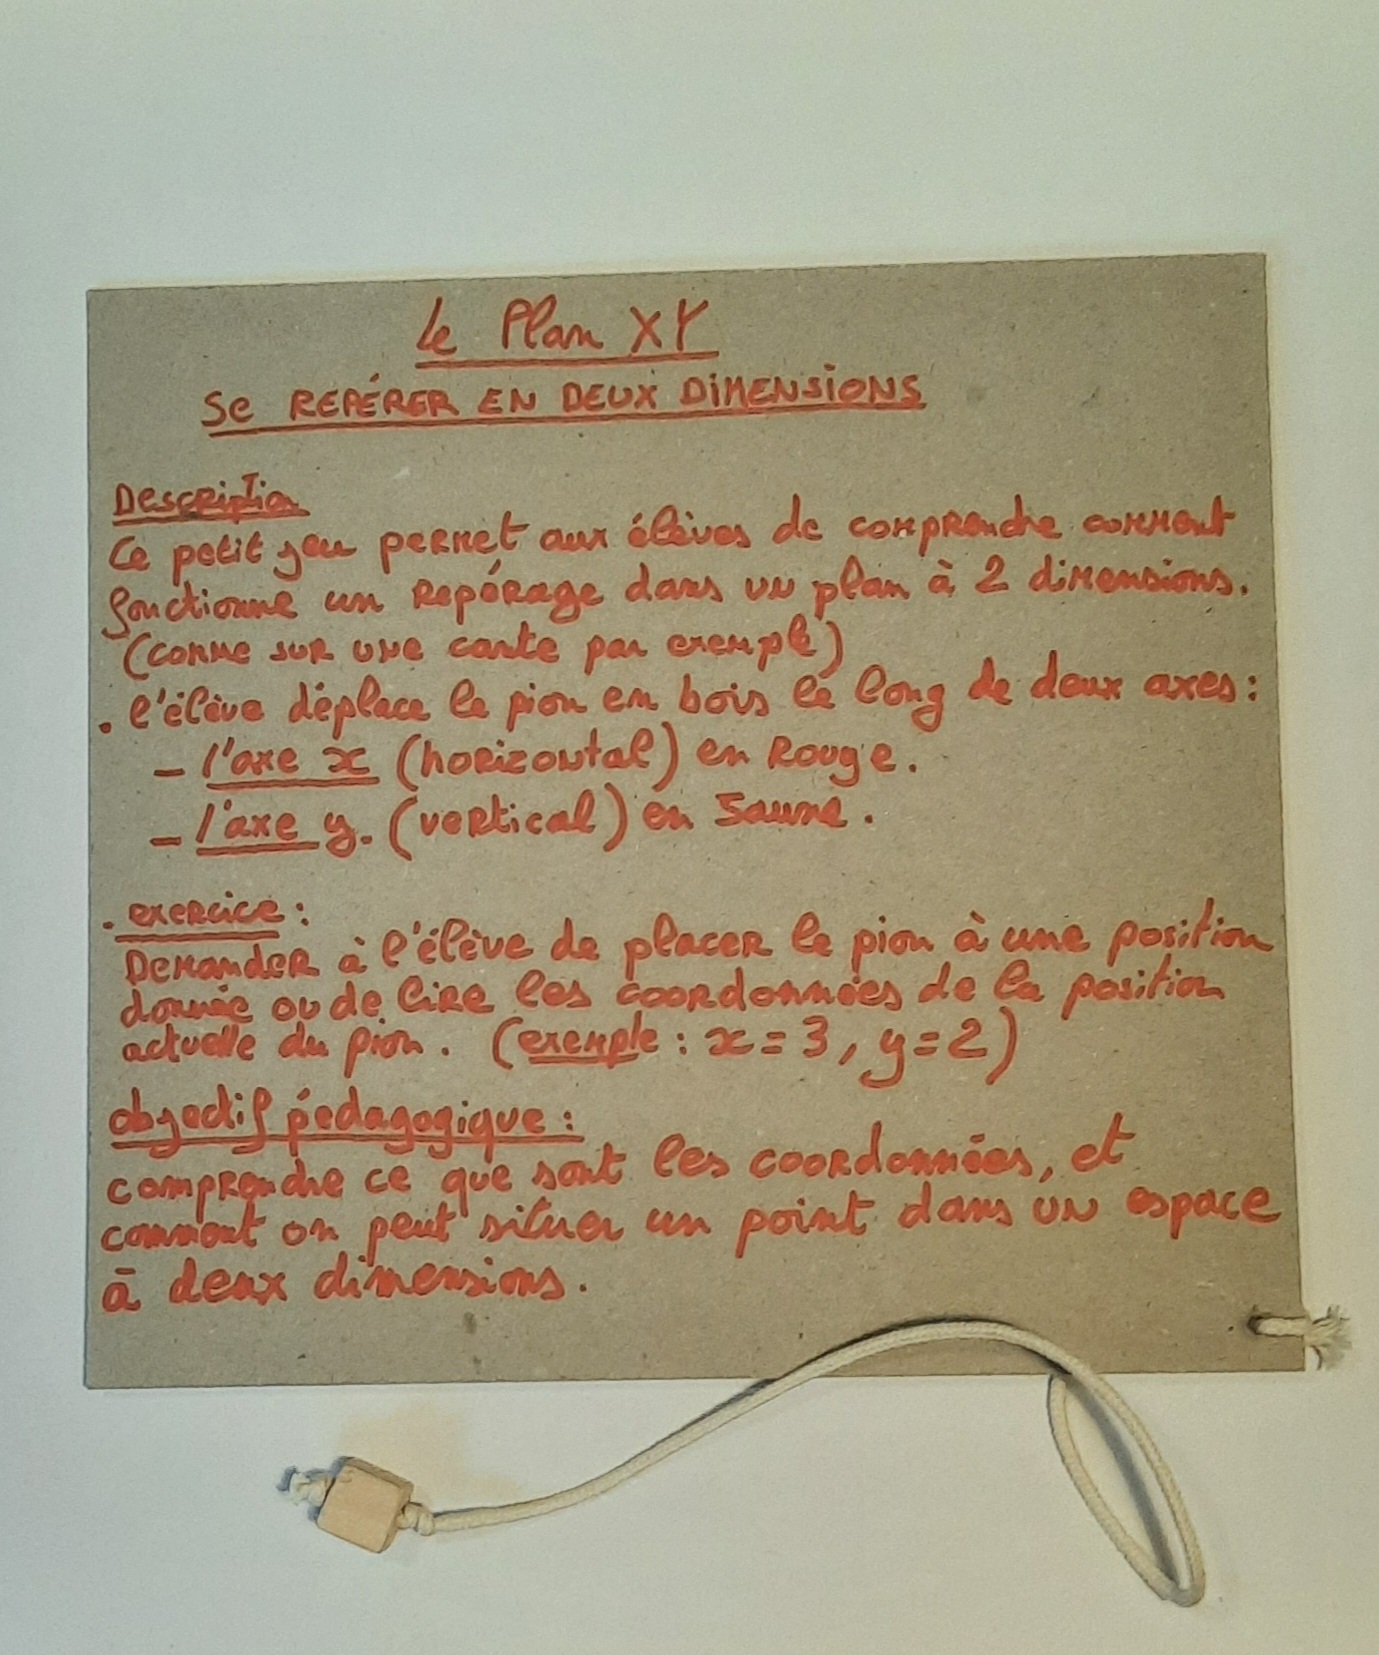 Le Plan XY
Se REPÉRER EN DEUX DIMENSIONS
Description
Ce petit jeu permet aux élèves de comprendre comment
fonctionne un repérage dans un plan à 2 dimensions.
(comme sur une carte par exemple)
. l'élève déplace le pion en bois le long de deux axes :
- l'axe x (horizontal) en Rouge.
- l'axe y. (vertical) en Jaune.
. exercice :
Demander à l'élève de placer le pion à une position
donnée ou de lire les coordonnées de la position
actuelle du pion. (exemple : x = 3, y = 2)
objectif pédagogique :
comprendre ce que sont les coordonnées, et
comment on peut situer un point dans un espace
à deux dimensions.